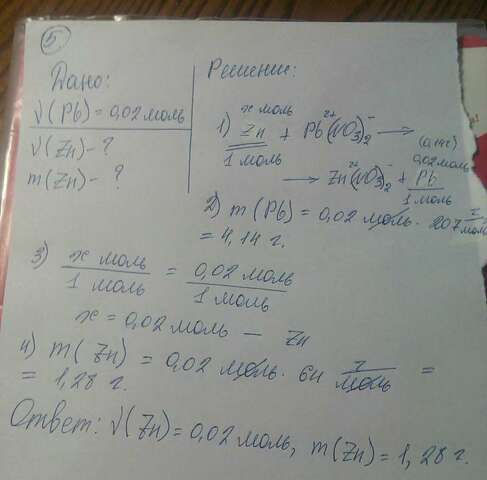 5
Дано:
ν(Pb) = 0,02 моль
ν(Zn) - ?
m(Zn) - ?
Решение:
x моль
1) Zn + Pb²⁺(NO₃)₂⁻ →
1 моль
0,02 моль
→ Zn²⁺(NO₃)₂⁻ + Pb
1 моль
2) m(Pb) = 0,02 моль · 207 г/моль
= 4,14 г.
3) x моль / 1 моль = 0,02 моль / 1 моль
x = 0,02 моль — Zn
4) m(Zn) = 0,02 моль · 64 г/моль =
= 1,28 г.
Ответ: ν(Zn) = 0,02 моль, m(Zn) = 1,28 г.